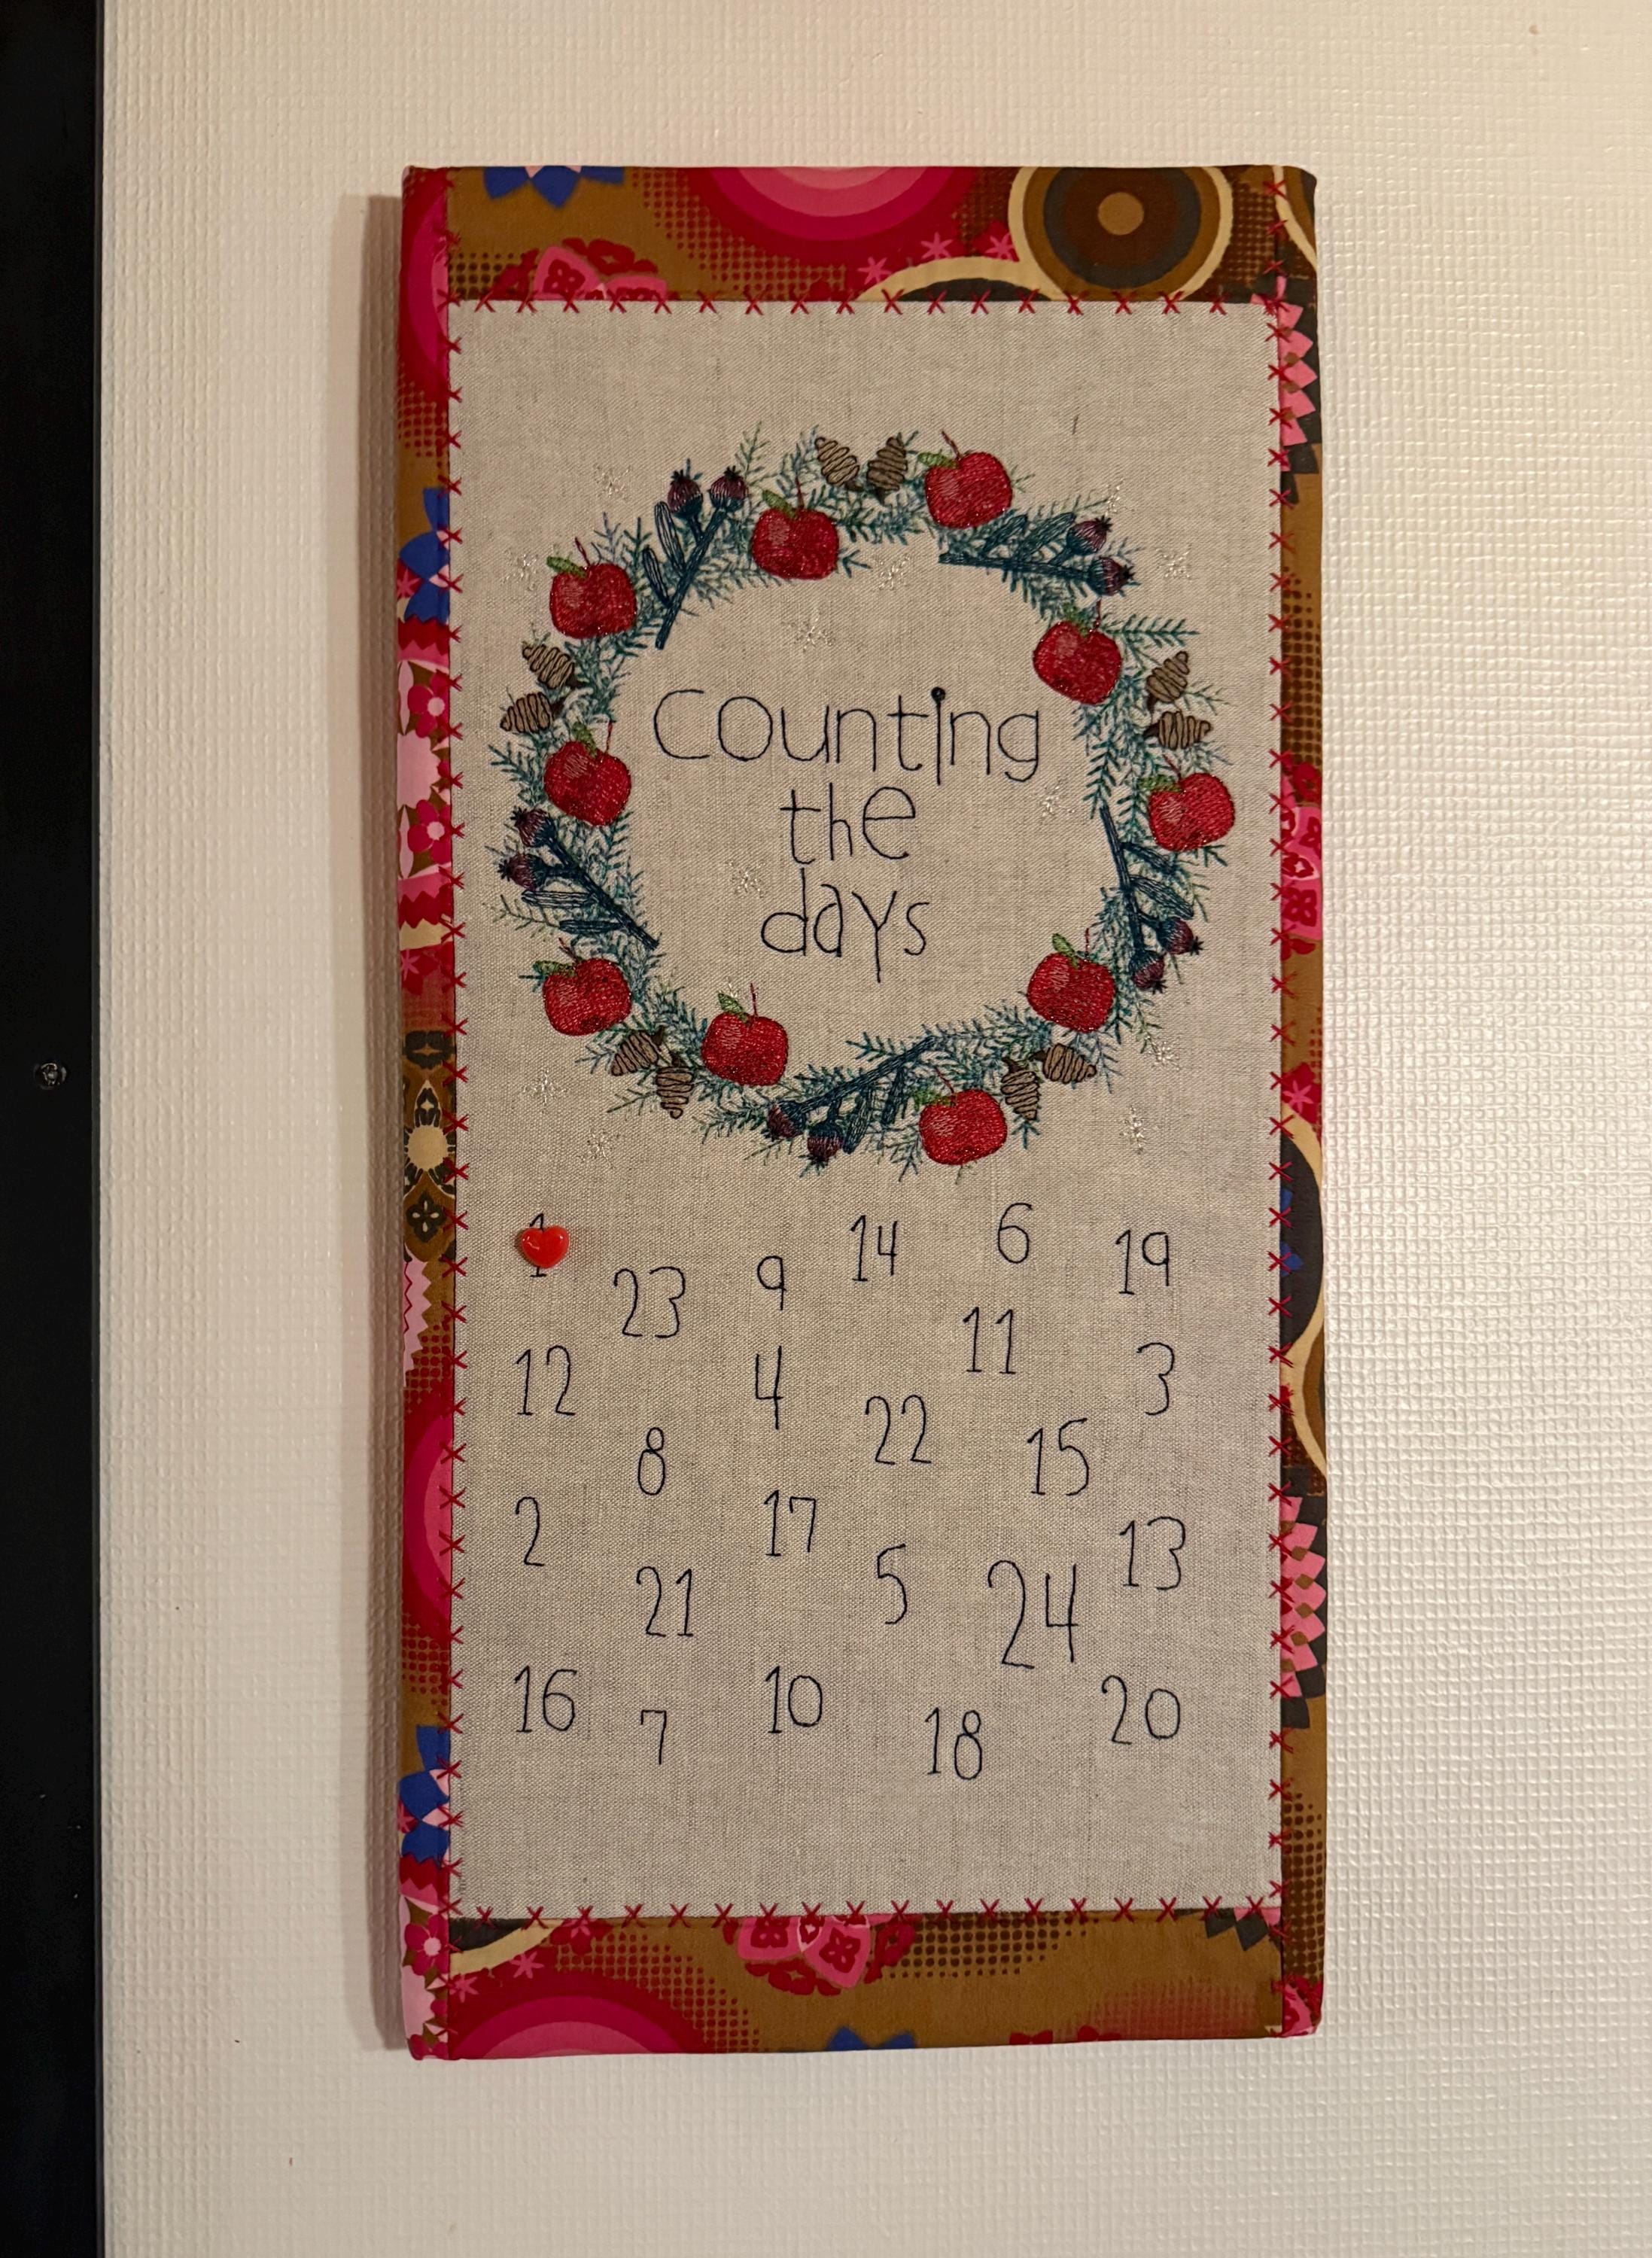 Counting
the
days
1 23 9 14 6 19
12 4 22 11 3
8 15
2 17 5 24 13
21
16 7 10 18 20